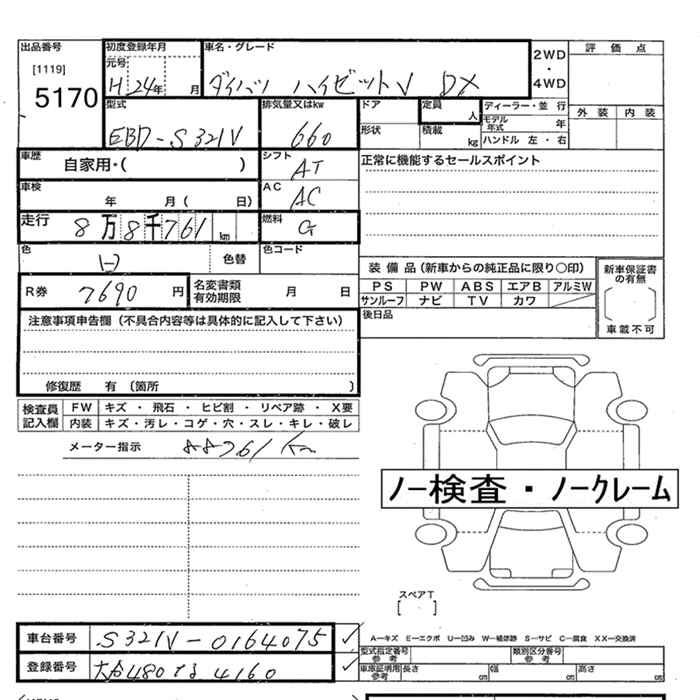 出品番号 初度登録年月 車名・グレード 評価点
[1119] 元号 2WD
5170 H 24年 月 ダイハツ ハイゼットV DX ・
4WD
型式 排気量又はkw ドア 定員 人 ディーラー・並 行 外 装 内 装
EBD-S321V 660 形状 積載 kg モデル年式 年
ハンドル 左・右
車歴 自家用・( ) シフト AT 正常に機能するセールスポイント
車検 年 月( 日) AC AC
走行 8万8千761 km 燃料 G
色 白 色替 色コード 装備品(新車からの純正品に限り〇印) 新車保証書の有無
R券 7690 円 名変書類有効期限 月 日 PS PW ABS エアB アルミW
サンルーフ ナビ TV カワ
( )
注意事項申告欄(不具合内容等は具体的に記入して下さい) 後日品 車載不可
修復歴 有 〔箇所 〕
検査員記入欄 FW キズ ・ 飛石 ・ ヒビ割 ・ リペア跡 ・ X要
内装 キズ・汚レ・コゲ・穴・スレ・キレ・破レ
メーター指示 88761 km
ノー検査・ノークレーム
スペアT
[ ]
車台番号 S321V-0164075 ✓ A-キズ E-エクボ U-凹み W-補修跡 S-サビ C-腐食 XX-交換済
型式指定番号 参考 類別区分番号 参考
登録番号 480 4160 ✓ 車庫証明用 参考 長さ cm 幅 cm 高さ cm